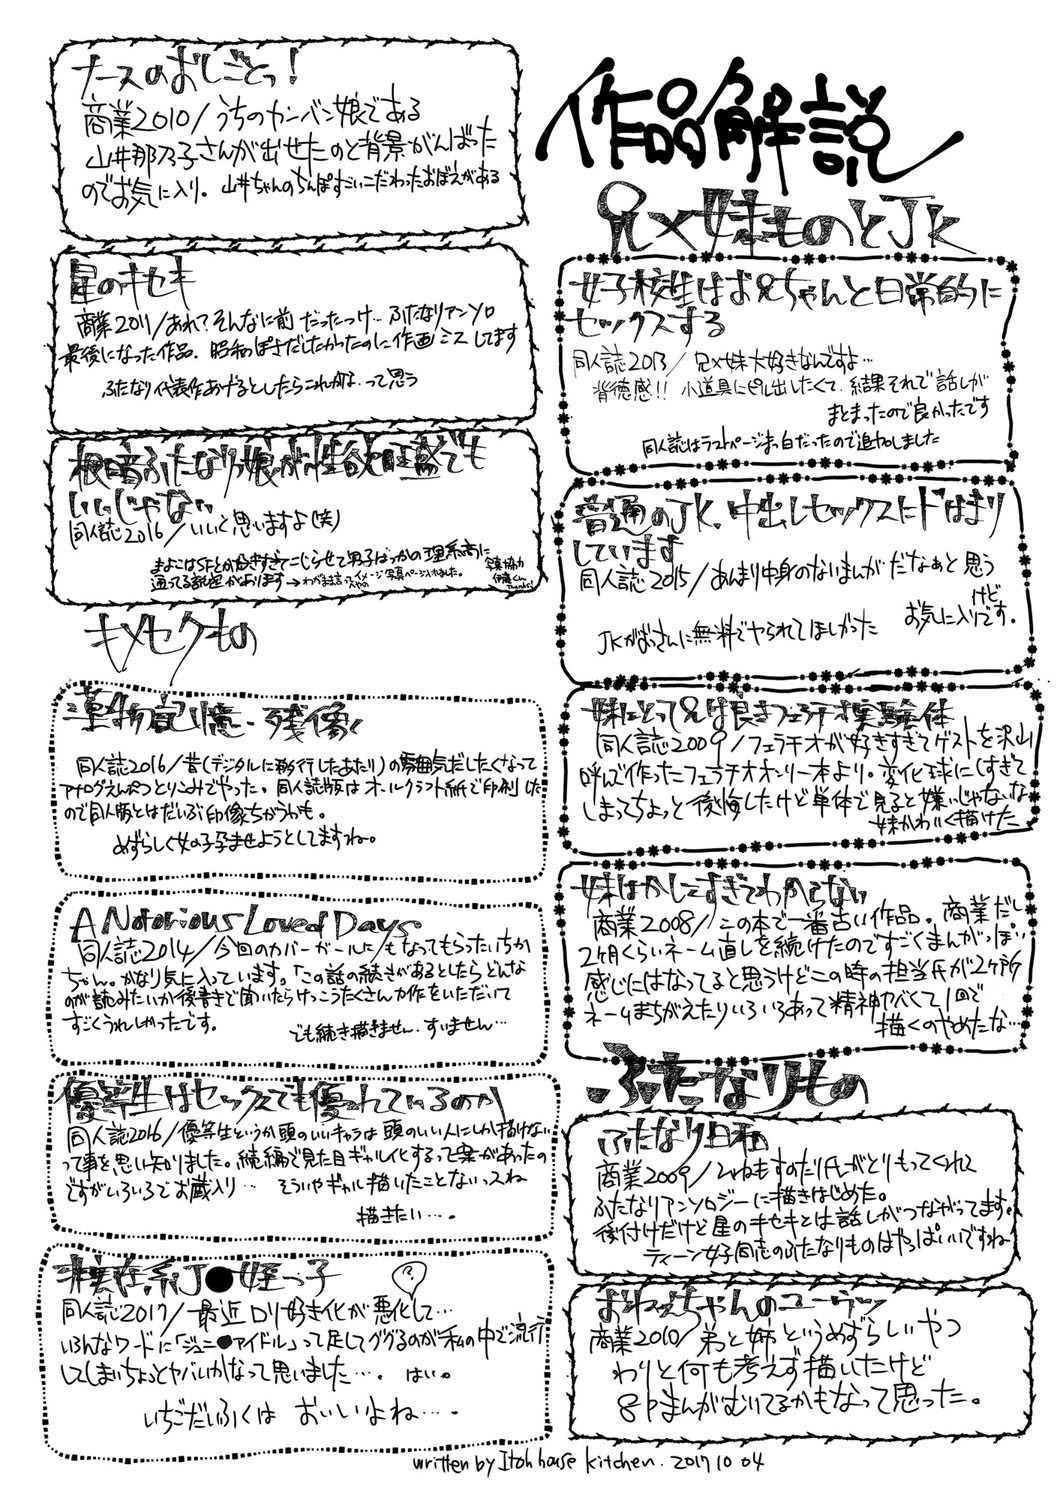 作品解説
兄×妹ものとJK
女子校生はお兄ちゃんと日常的に
セックスする
同人誌2013/兄×妹大好きなんですよ…
背徳感!! 小道具にピル出したくて、結果それで話しが
まとまったので良かったです
同人誌はラストページまっ白だったので追加しました
普通のJK、中出しセックスにドはまり
しています
同人誌2015/あんまり中身のないまんがだなぁと思う
けど
お気に入りです。
JKがおっさんに無料でヤられてほしかった
妹にとって兄は良きフェラチオ実験体
同人誌2009/フェラチオが好きすぎてゲストを沢山
呼んで作ったフェラチオオンリー本より。変化球にしすぎて
しまってちょっと後悔したけど単体で見ると嫌いじゃないな
妹かわいく描けた
妹はかしこすぎてわからない
商業2008/この本で一番古い作品。商業だし
2ヶ月くらいネーム直しを続けたのですごくまんがっぽい
感じにはなってると思うけどこの時の担当氏が2ヶ所
ネームまちがえたりいろいろあって精神ヤバくて1回で
描くのやめたな…
ふたなりもの
ふたなり日和
商業2009/しゃねもすのたり氏がとりもってくれて
ふたなりアンソロジーに描きはじめた。
後付けだけど星のキセキとは話しがつながってます。
ティーン女子同志のふたなりものはやっぱいいですね
おねえちゃんのユーウツ
商業2010/弟と姉というめずらしいやつ
わりと何も考えず描いたけど
8Pまんがむいてるかもなって思った。
ナースのおしごとっ!
商業2010/うちのカンバン娘である
山井那乃子さんが出せたのと背景がんばった
のでお気に入り。山井ちゃんのちんぽすごいこだわったおぼえがある
星のキセキ
商業2011/あれ?そんなに前だったっけ…ふたなりアンソロ
最後になった作品。昭和っぽさだしたかったのに作画ミスしてます
ふたなり代表作あげるとしたらこれかな…って思う
根暗ふたなり娘が性欲旺盛でも
いいじゃない
同人誌2016/いいと思いますよ(笑)
まよこはSFとか好きすぎてこじらせて男子ばっかの理系高に
通ってる設定があります→
写真協力
伊藤くん
Thanks!
キメセクもの
薬物記憶・残像
同人誌2016/昔(デジタルに移行したあたり)の雰囲気だしたくなって
アナログえんぴつとりこみでやった。同人誌版はオールクラフト紙で印刷した
ので同人版とはだいぶ印像ちがうかも。
めずらしく女の子孕ませようとしてますね。
A Notorious Loved Days
同人誌2014/今回のカバーガールにもなってもらったいちか
ちゃん。かなり気に入っています。「この話の続きがあるとしたらどんな
のが読みたいか後書きで聞いたらけっこうたくさん力作をいただいて
すごくうれしかったです。
でも続き描きません…すいません…
優等生はセックスでも優れているのか
同人誌2016/優等生というか頭のいいキャラは頭のいい人にしか描けない
って事を思い知りました。続編で見た目ギャル化するって案があったの
ですがいろいろでお蔵入り… そういやギャル描いたことないっスね
描きたい…。
非実在系J●姪っ子
?
同人誌2017/最近ロリ好き化が悪化して…
いろんなワードに「ジュニ●アイドル」って足してググるのが私の中で流行
してしまいちょっとヤバいかなって思いました…。はい。
いちごだいふくは おいしいよね…。
written by Itoh house kitchen. 2017 10 04